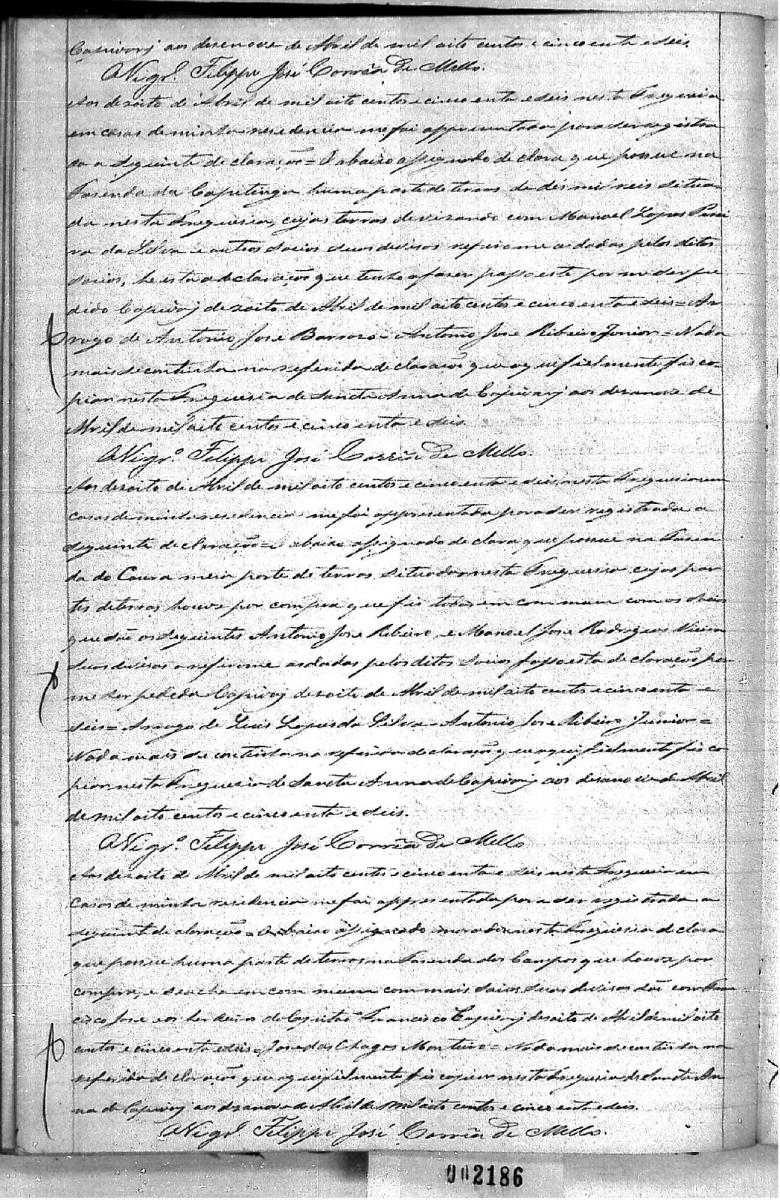 Capivary aos desenove de Abril de mil oito centos e cincoenta e seis
O Vigrº. Filippe José Corrêa de Mello.
Aos desoito de Abril de mil oito centos e cincoenta e seis nesta Freguezia
em casas de minha residencia me foi appresentada para ser registra
da a seguinte declaração = O abaixo assignado declara que possue na
Fasenda da Capitinga huma parte de terras de des mil reis situa
da nesta Freguezia, cujas terras devizando com Manoel Lopes Perei
ra da Silva e outros socios suas divisas refiro me as dadas pelos ditos
socios, he esta a declaração que tenho a faser passo esta por me ser pe
dido Capivary desoito de Abril de mil oito centos e cincoenta e seis = Ar
rogo de Antonio Jose Barroso = Antonio Jose Ribeiro Junior = Nada
mais se continha na referida declaração que aqui fielmente fis co
piar nesta Freguezia de Santa Anna de Capivary aos desanove de
Abril de mil oito centos e cincoenta e seis.
O Vigrº. Filippe José Corrêa de Mello.
Aos desoito de Abril de mil oito centos e cincoenta e seis, nesta Freguezia em
casas de minha residencia me foi appresentada para ser registrada a
seguinte declaração = O abaixo assignado declara que possue na Fasen
da do meia parte de terras situadas nesta Freguezia cujas par
tes de terras houve por compra que fis todas em commum com os socios
que são os seguintes Antonio Jose Ribeiro, e Manoel Jose Rodrigues Vieira
suas divisas a refirome as dadas pelos ditos socios passo esta declaração por
me ser pedida Capivary desoito de Abril de mil oito centos e cincoenta e
seis = Arrogo de Luis Lopes da Silva = Antonio Jose Ribeiro Junior =
Nada mais se continha na referida declaração que aqui fielmente fis co
piar nesta Freguezia de Santa Anna de Capivary aos desanove de Abril
de mil oito centos e cincoenta e seis.
O Vigrº. Filippe José Corrêa de Mello
Aos desoito de Abril de mil oito centos e cincoenta e seis nesta Freguezia em
casas de minha residencia me foi appresentada para ser registrada a
seguinte declaração = O abaixo assignado morador nesta Freguezia declara
que possue huma parte de terras na Fasenda dos Campos que houve por
compra, e se acha em commum com mais socios suas divisas são com Fran
cisco Jose e os herdeiros do Capitão Francisco Capivary desoito de Abril de mil oito
centos e cincoenta e seis = Jose das Chagas Monteiro = Nada mais se continha na
referida declaração que aqui fielmente fis copiar nesta Freguezia de Santa An
na de Capivary aos desanove de Abril de mil oito centos e cincoenta e seis.
O Vigrº. Filippe José Corrêa de Mello.
002186